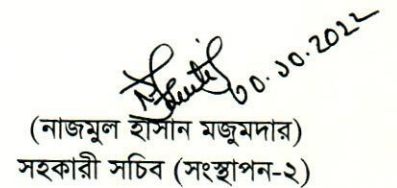 ৩০.১০.২০২২
(নাজমুল হাসান মজুমদার)
সহকারী সচিব (সংস্থাপন-২)